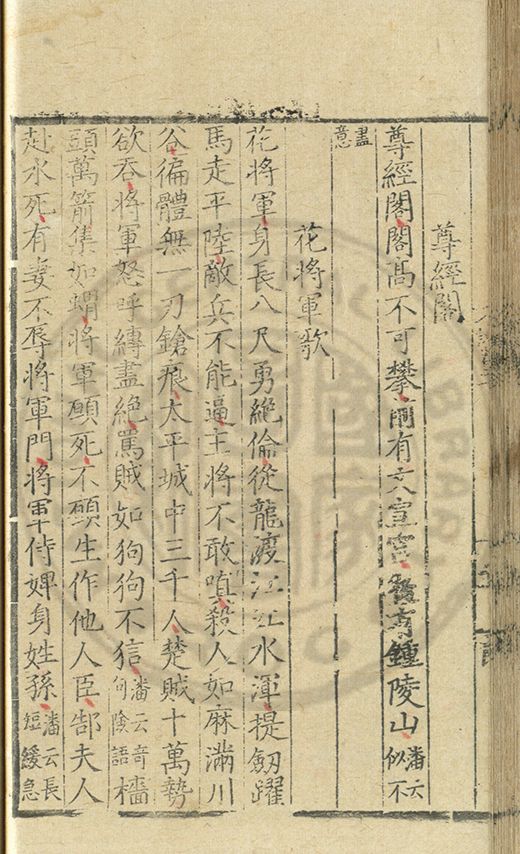 尊經閣
尊經閣閣高不可攀前有文宣宮後有鍾陵山潘云似不
盡意
花將軍歌
花將軍身長八尺勇絕倫從龍渡江江水渾提劒躍
馬走平陸敵兵不能逼主將不敢嗔殺人如麻滿川
谷徧體無一刃鎗痕太平城中三千人楚賊十萬勢
欲吞將軍怒呼縛盡絕罵賊如狗狗不狺潘云奇句險語檣
頭萬箭集如蝟將軍願死不願生作他人臣郜夫人
赴水死有妻不辱將軍門將軍侍婢身姓孫潘云長短緩急